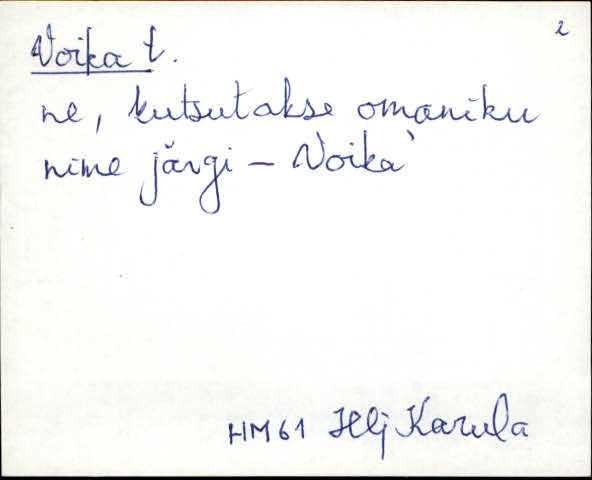 2
Voika t.
ne, kutsutakse omaniku
nime järgi – Voika`
HM 61 Hlj Karula